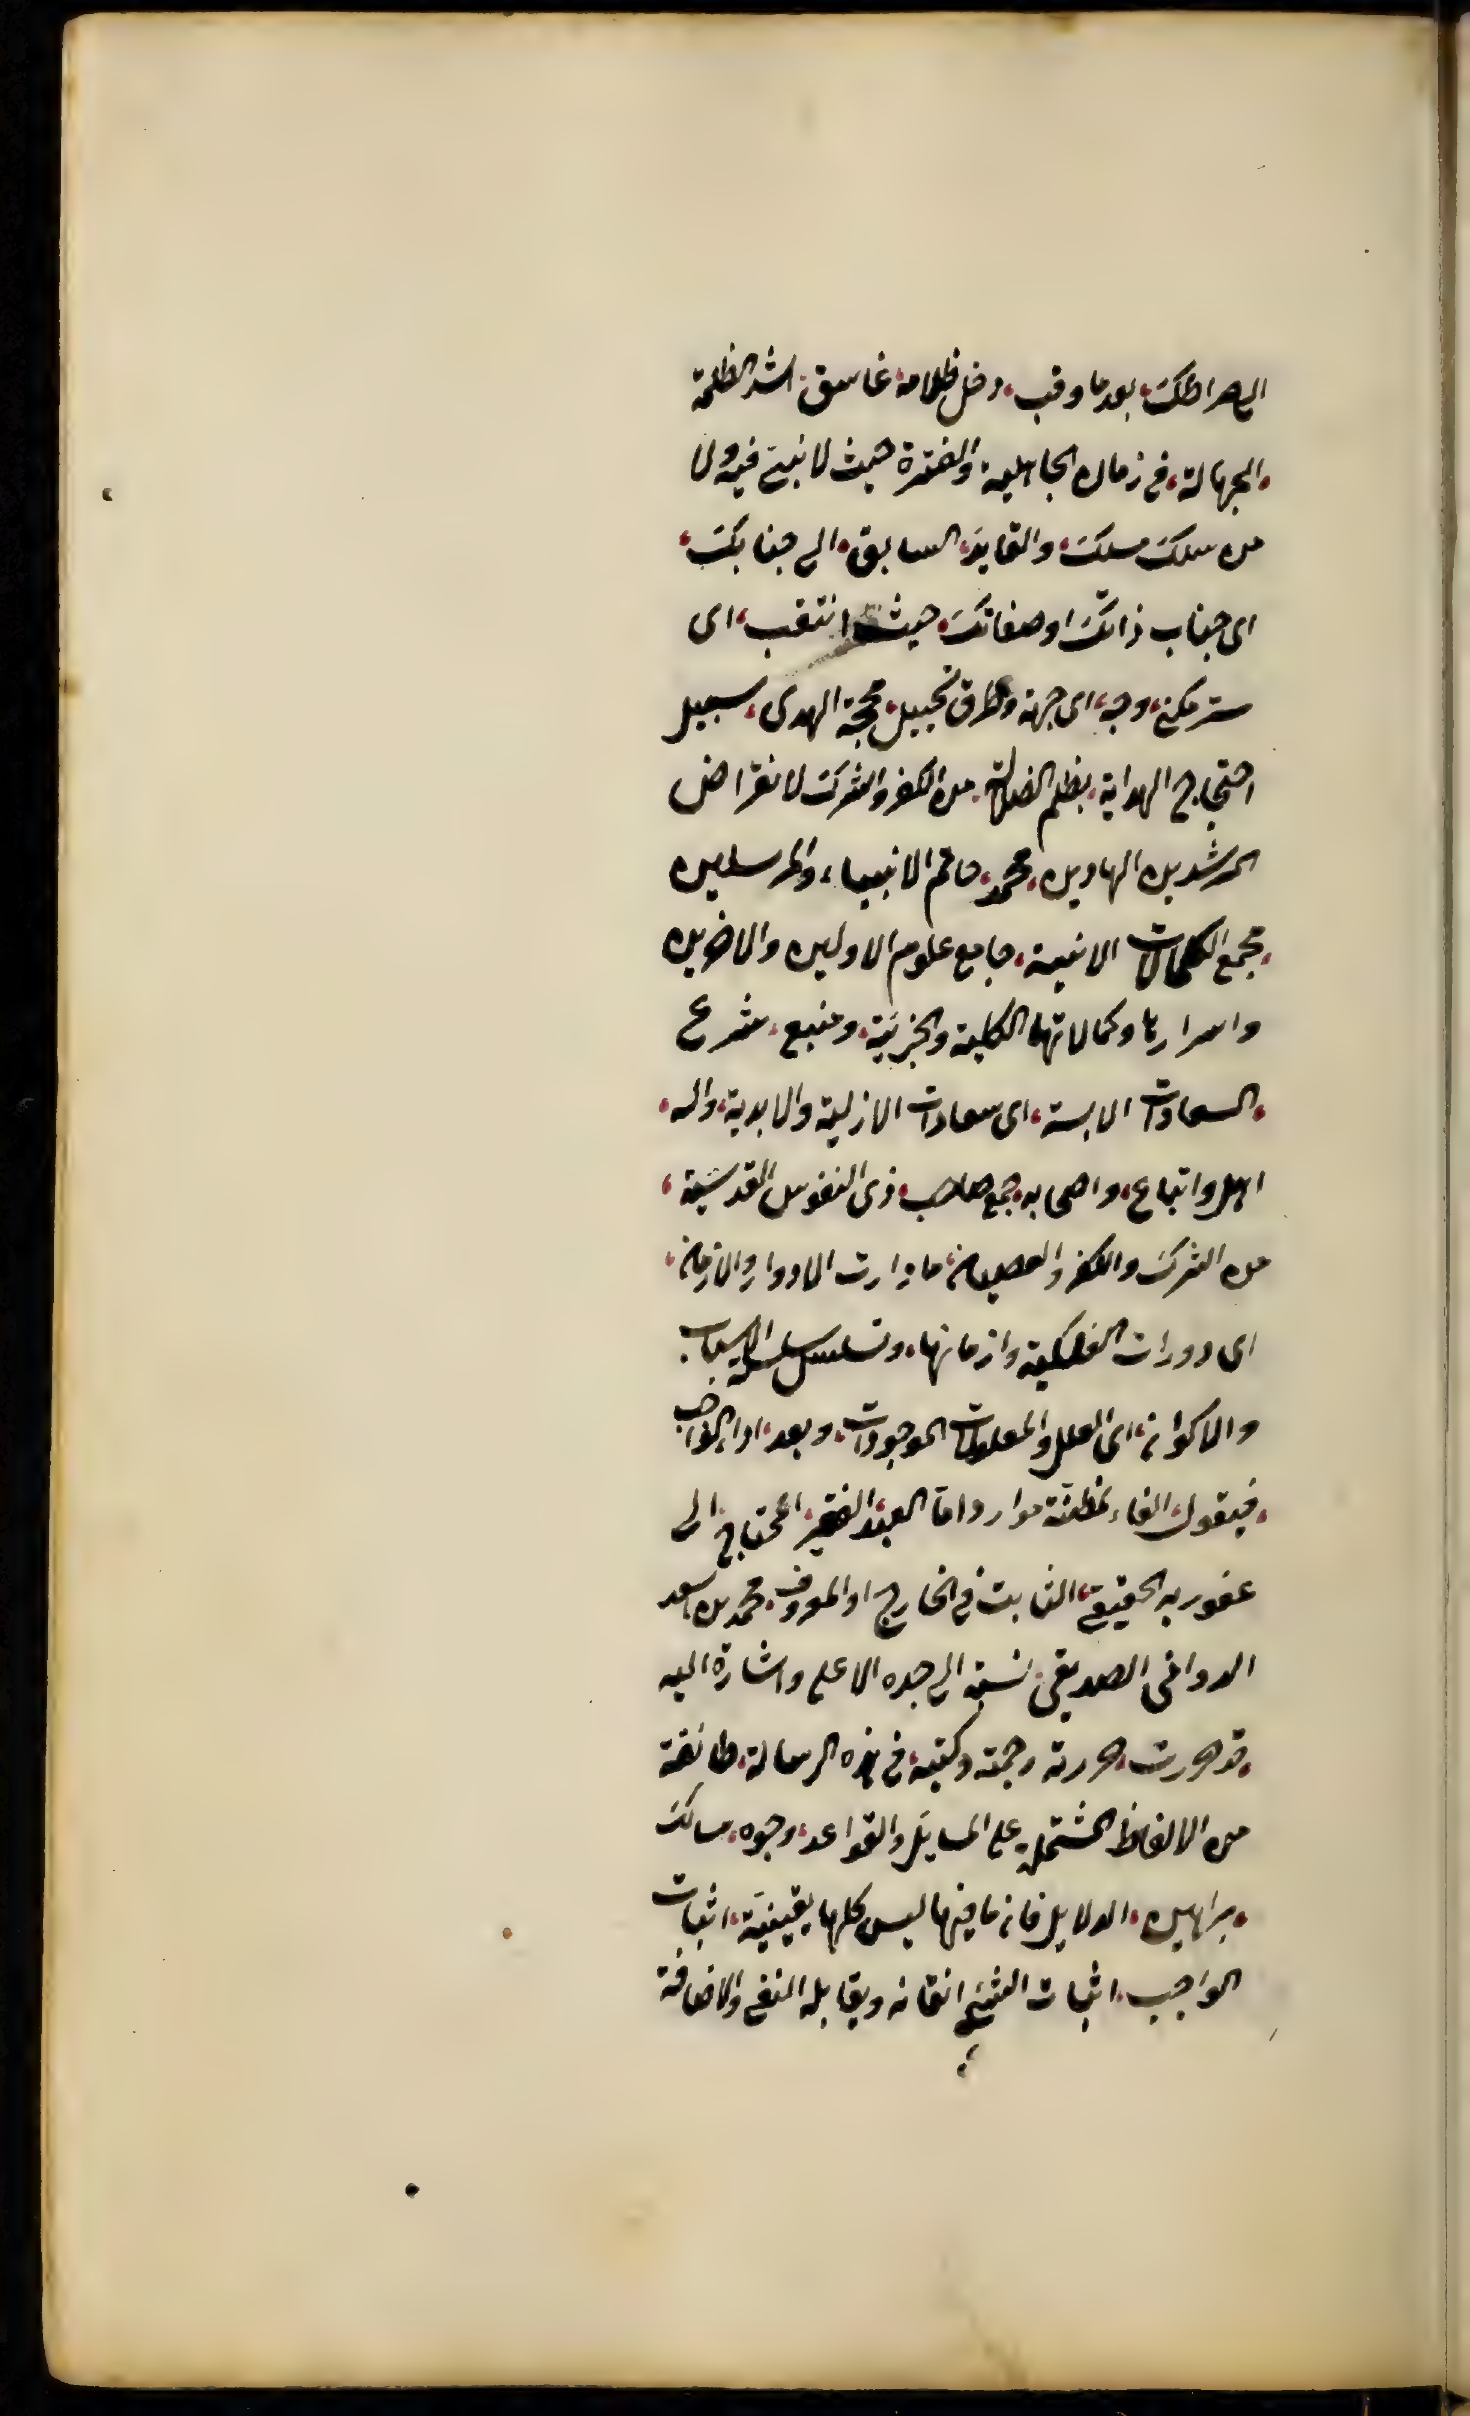 الى صراطك بعد ما وقب دخل ظلامه غاسق اشد الظلمة
الجهالة في زمان الجاهلية والفترة حيث لا نبي فيه ولا
من سلك مسلك والقايد السابق الى جنابك
اى جناب ذاتك او صفاتك حيث انتقب اى
ستر مكنى وجه اى جهة وطرق تحييل محجة الهدى سبيل
احتجاج الهداية بظلم الضلالة من الكفر والشرك لانقراض
المرشدين الهادين محمد خاتم الانبياء والمرسلين
مجمع الكمالات الانسية جامع علوم الاولين والاخرين
واسرارها وكمالاتها الكلية والجزئية ومنبع مشرع
السعادات الابدية اى سعادات الازلية والابدية واله
اهل واتباع واصحابه جمع صاحب ذى النفوس القدسية
من الشرك والكفر والعصيان ما دارت الادوار والازمان
اى دورات الفلكية وازمانها وتسلسل سلسلة الاسباب
والاكوان اى العلل والمعلولات الموجودات وبعد اداء الواجب
فيقول الفاء لمظنة موارد اما العبد الفقير المحتاج الى
عفو ربه الحقيقى الثابت في الخارج او المعروف محمد بن اسعد
الدوانى الصديقى نسبة الى جده الاعلى واشارة اليه
قد حررت حررته وجمعته وكتبته في هذه الرسالة طائفة
من الالفاظ المشتملة على المسايل والقواعد وجوه مسالك
براهين الدلايل فان ما فيها ليس كلها يقينية اثبات
الواجب اثبات الشئ اتقانه ويقابله النفى والاضافة